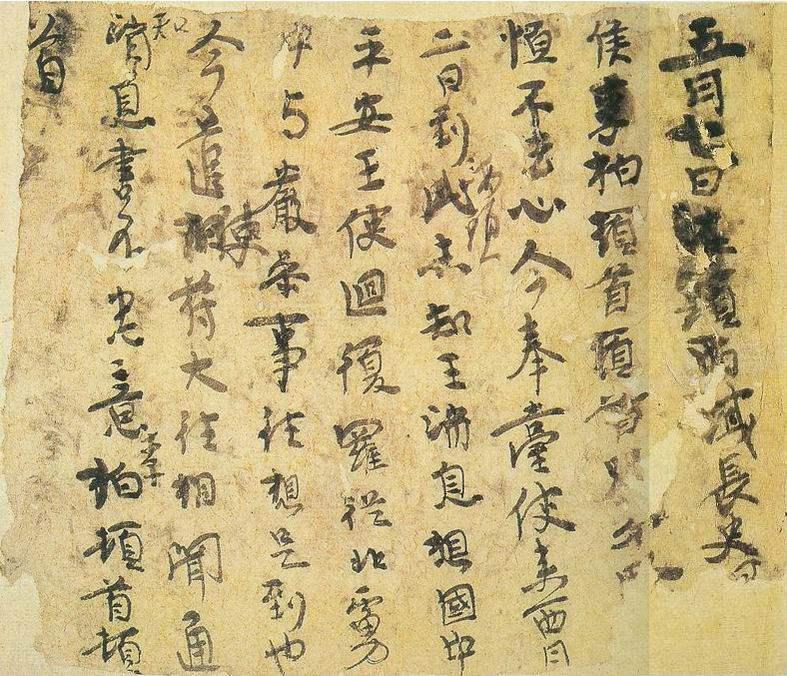 五月七日海頭西域長史
侯李柏頓首頓首
恒不去心今奉臺使来西月
二日到此海頭未知王消息想國中
平安王使迴復羅從北虜
中与嚴參事往想是到也
今遣使苻大往相聞通
知消息書不悉意李柏頓首頓
首